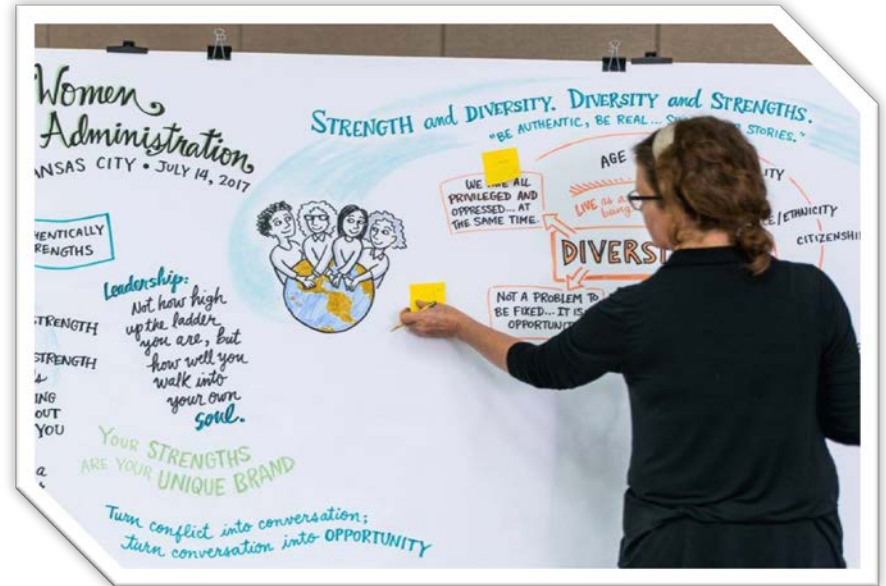 Women
Administration
NSAS CITY • JULY 14, 2017
HENTICALLY
RENGTHS
Leadership:
Not how high
up the ladder
you are, but
how well you
walk into
your own
soul.
TRENGTH
STRENGTH
ING
OUT
YOU
a
YOUR STRENGTHS
ARE YOUR UNIQUE BRAND
Turn conflict into conversation;
turn conversation into OPPORTUNITY
STRENGTH and DIVERSITY. DIVERSITY and STRENGTHS.
"BE AUTHENTIC, BE REAL... STORIES."
WE ALL
PRIVILEGED AND
OPPRESSED... AT
THE SAME TIME.
AGE
LIVE as a
ITY
E/ETHNICITY
CITIZENSHI
DIVERS
NOT A PROBLEM TO
BE FIXED... IT IS
OPPORTUNI